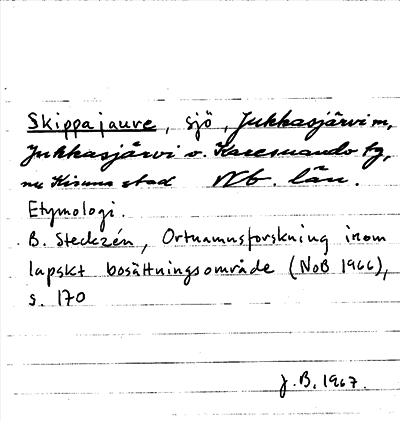 Skippajaure, sjö, Jukkasjärvi sn,
Jukkasjärvi o. Karesuando tg,
nu Kiruna stad Nb. län.
Etymologi.
B. Steckzén, Ortnamnsforskning inom
lapskt bosättningsområde (NoB 1966),
s. 170
J.B. 1967.